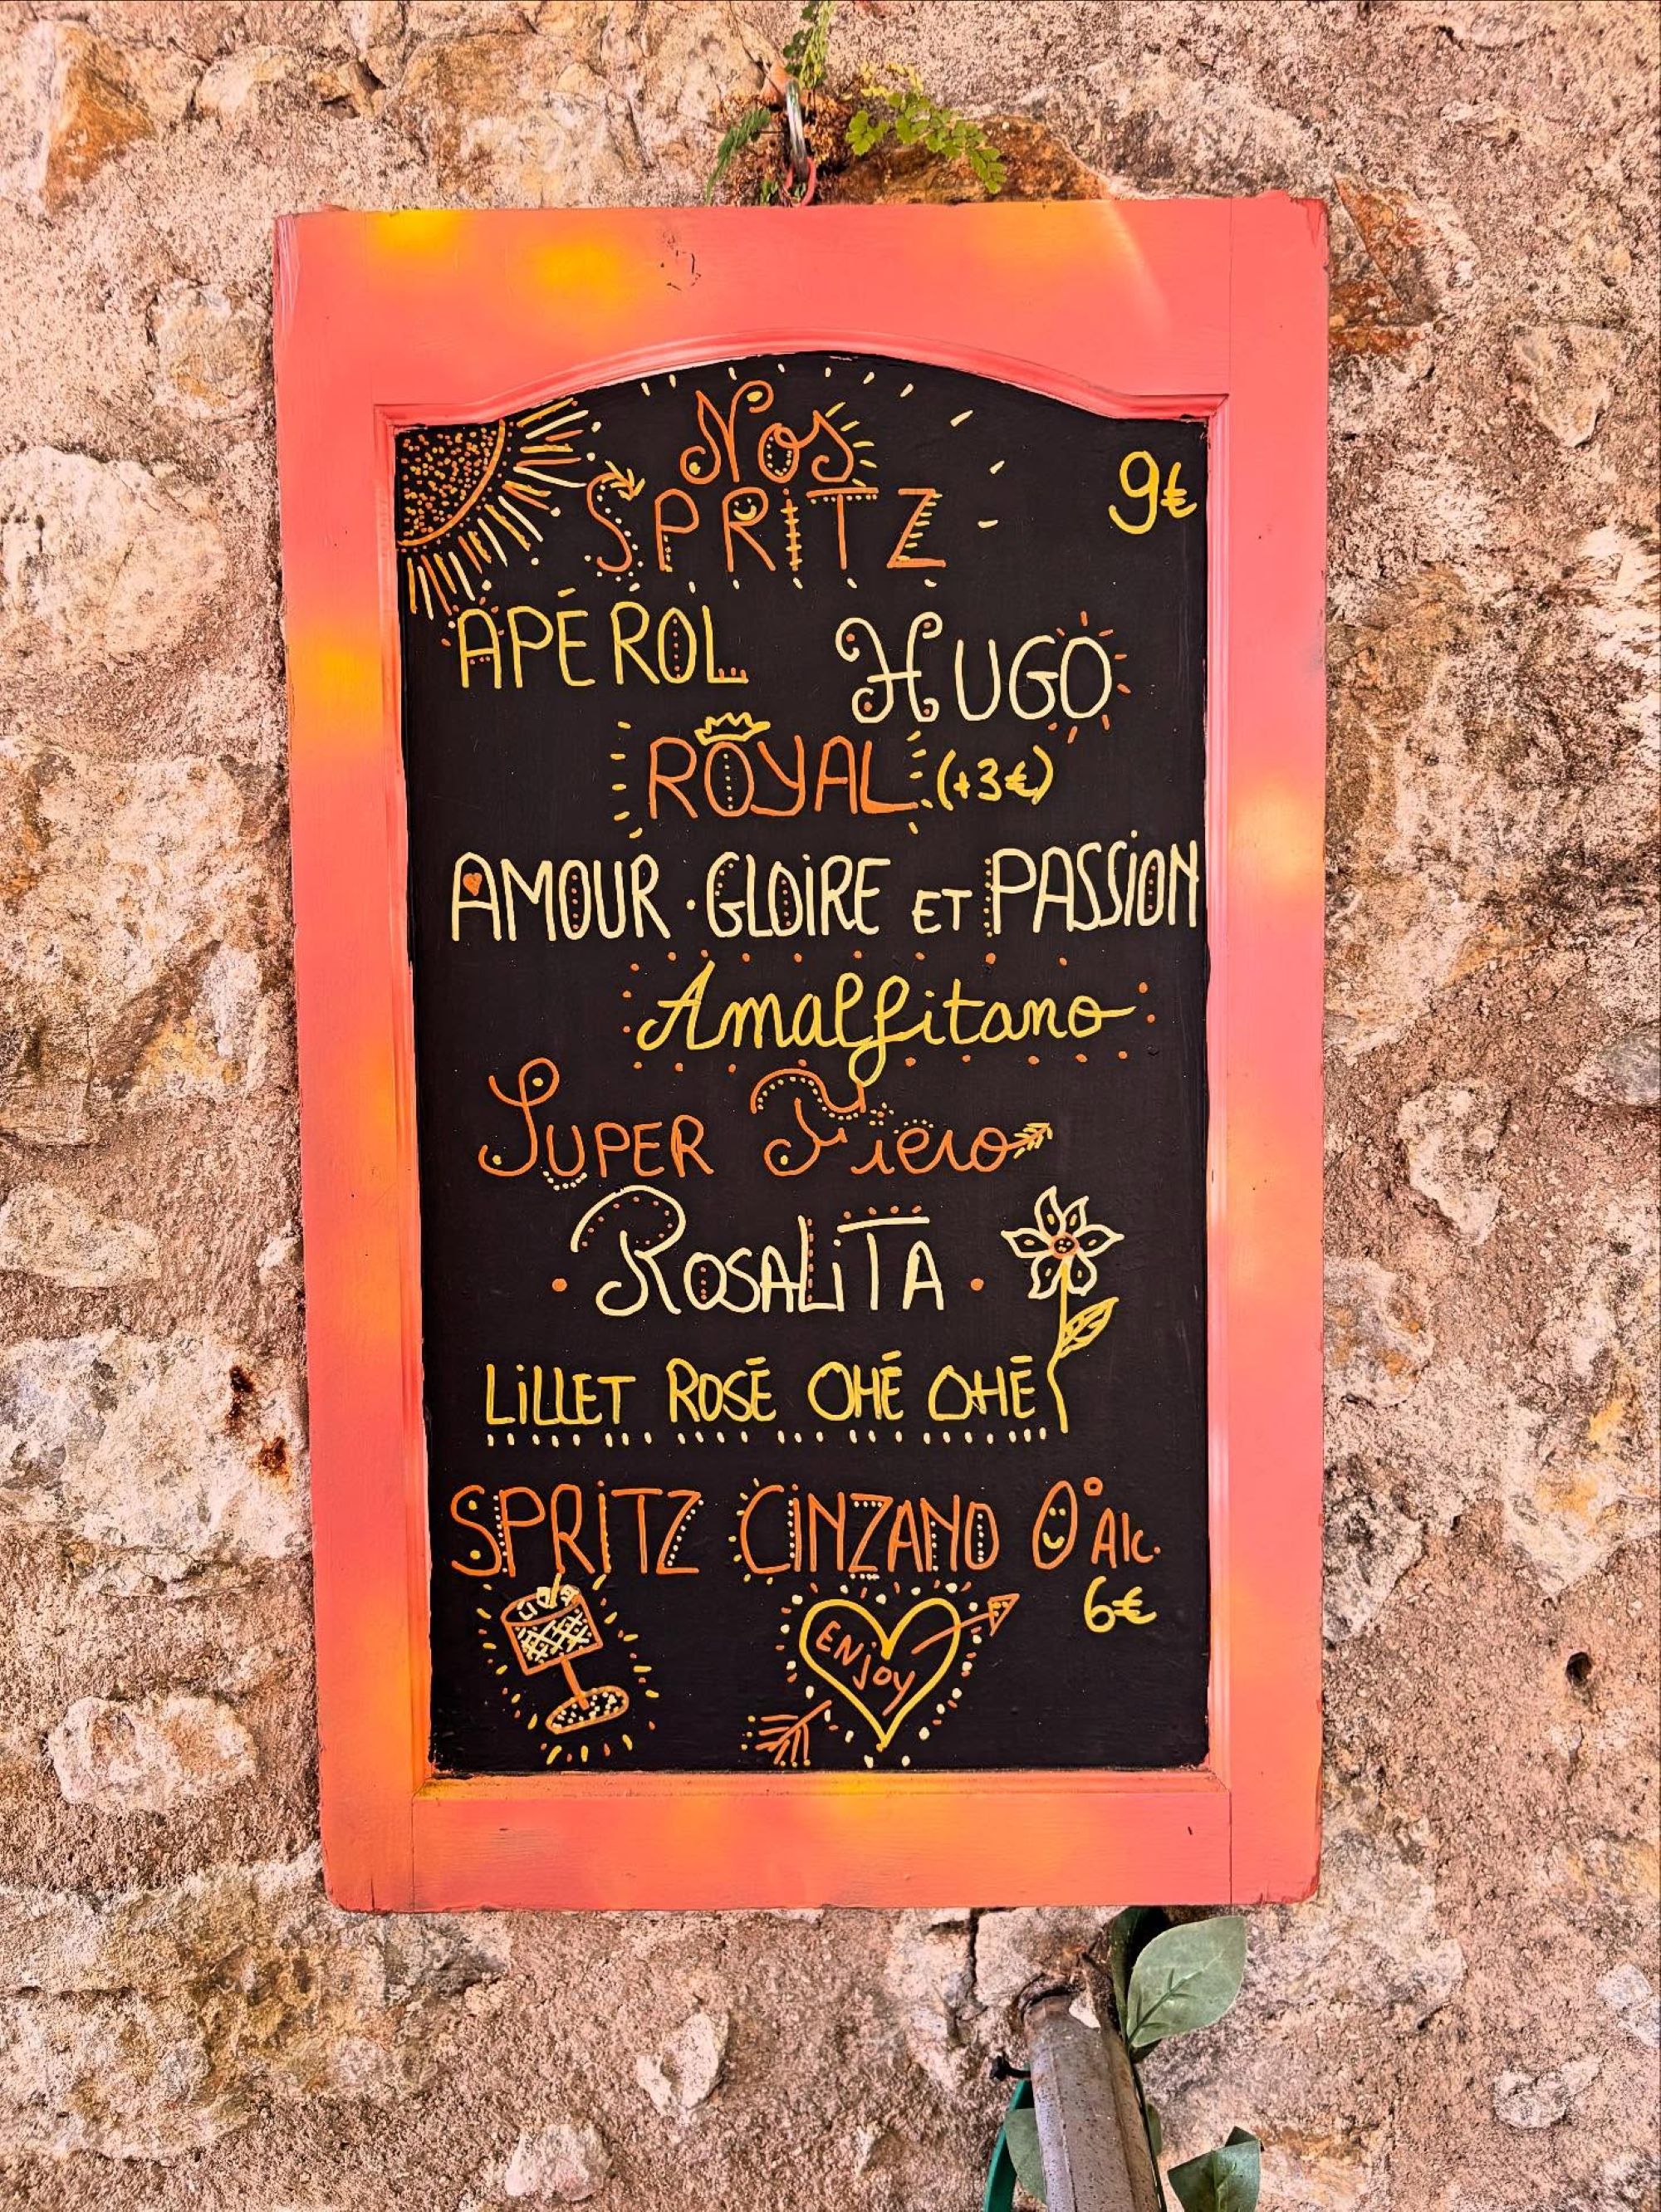 Nos
SPRiTZ 9€
APÉROL HUGO
ROYAL (+3€)
AMOUR · GLOiRE ET PASSiON
Amalfitano
SUPER Fiero
ROSALiTA
LiLLET ROSÉ OHÉ OHÉ
SPRiTZ CiNZANO 0° Alc.
6€
ENjOY